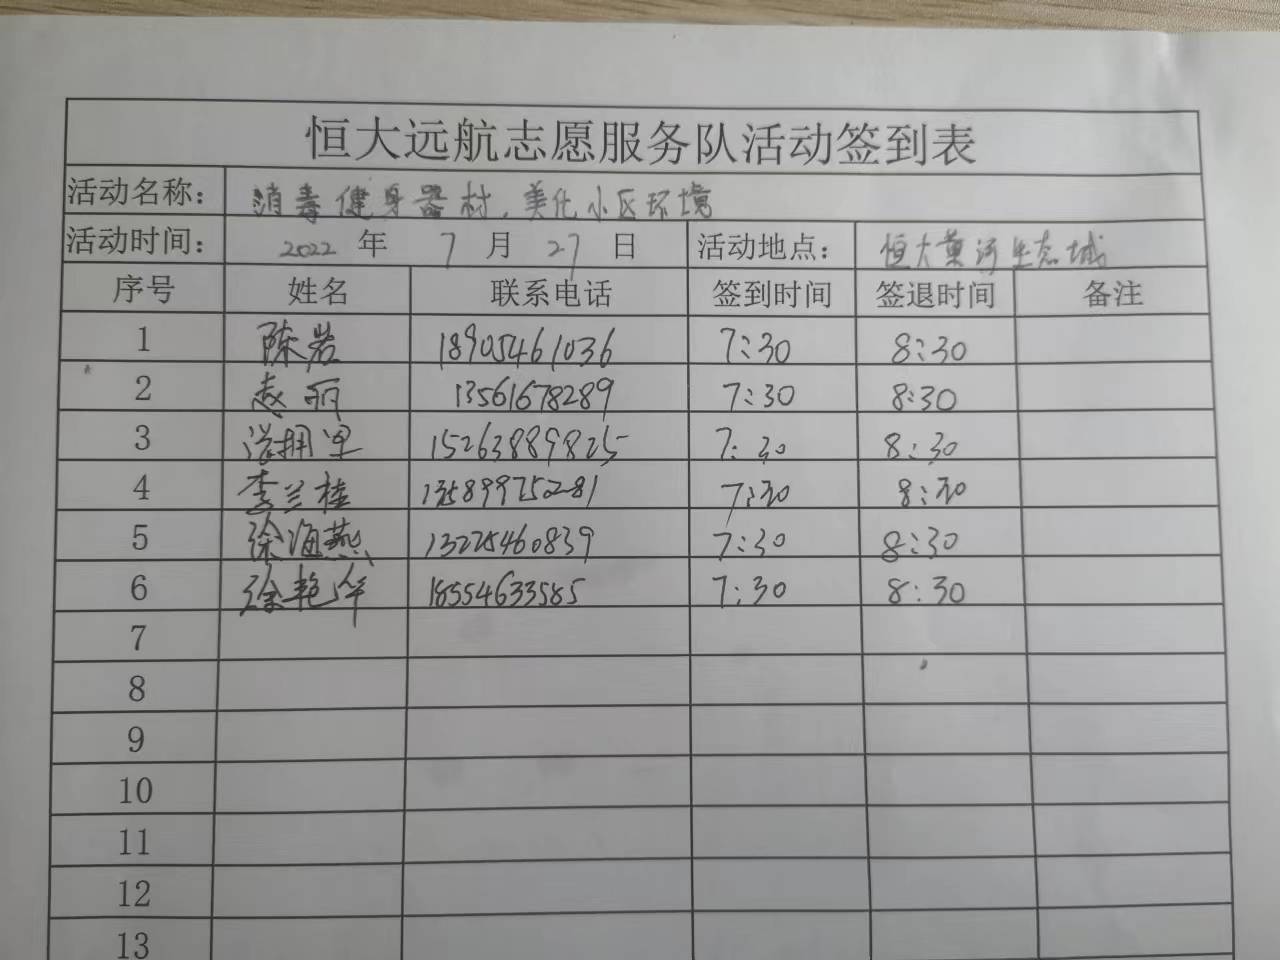 恒大远航志愿服务队活动签到表
活动名称： 消毒健身器材、美化小区环境
活动时间： 2022 年 7 月 27 日 活动地点： 恒大黄河生态城
序号 姓名 联系电话 签到时间 签退时间 备注
1 陈岩 18905461036 7:30 8:30
2 赵丽 13561678289 7:30 8:30
3 15263889825 7:30 8:30
4 李兰桂 13589975281 7:30 8:30
5 徐海燕 13225460839 7:30 8:30
6 徐艳华 18554633585 7:30 8:30
7
8
9
10
11
12
13